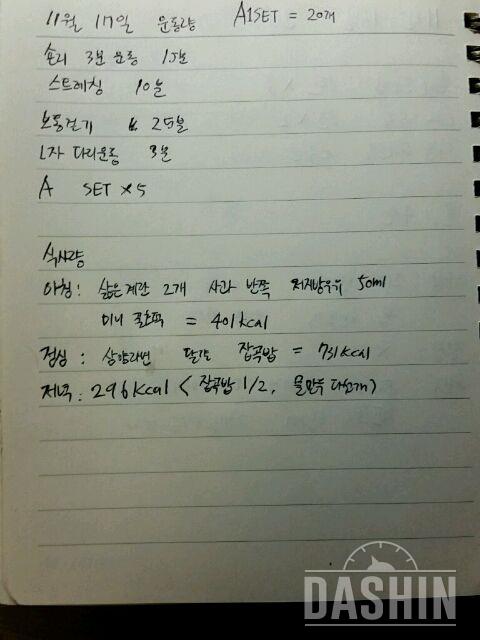 11월 17일 운동량 A1SET = 20개
숀리 3분 운동 15분
스트레칭 10분
보통걷기 25분
L자 다리운동 3분
A SET x 5
식사량
아침: 삶은계란 2개 사과 반쪽 저지방우유 50ml
미니 = 401kcal
점심: 삼양라면 달걀 잡곡밥 = 731kcal
저녁: 296kcal (잡곡밥 1/2, 물만두 다섯개)
DASHIN